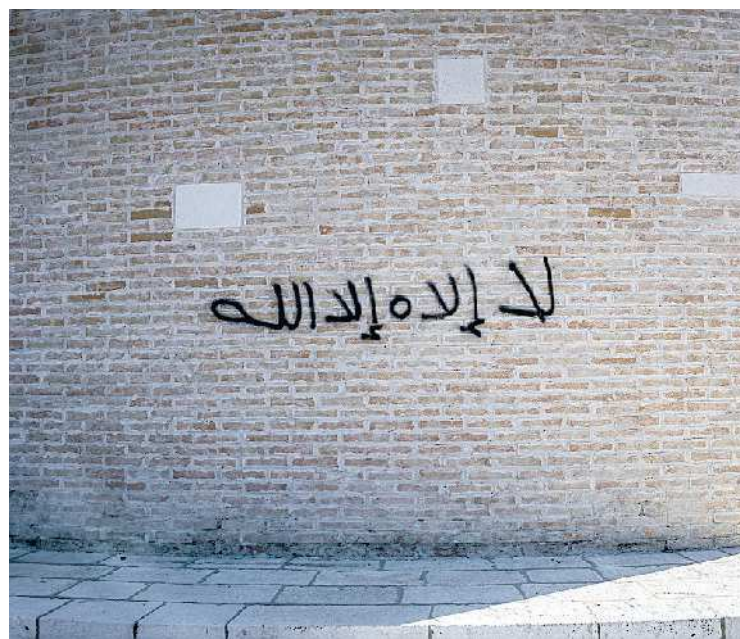 لا إلاه إلا الله